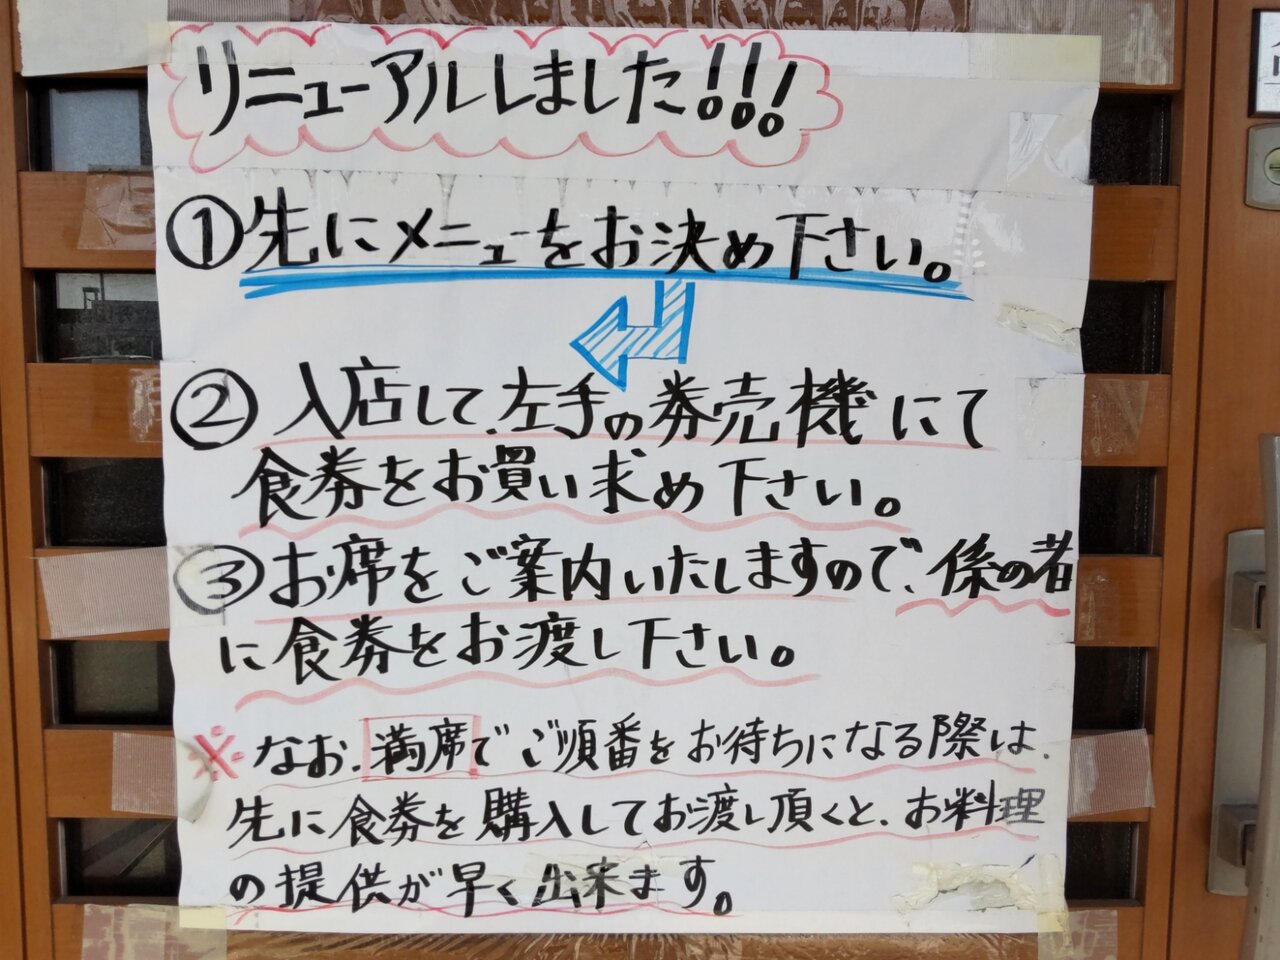 リニューアルしました!!!
①先にメニューをお決め下さい。
②入店して、左手の券売機にて
食券をお買い求め下さい。
③お席をご案内いたしますので、係の者
に食券をお渡し下さい。
※なお、満席でご順番をお待ちになる際は、
先に食券を購入してお渡し頂くと、お料理
の提供が早く出来ます。